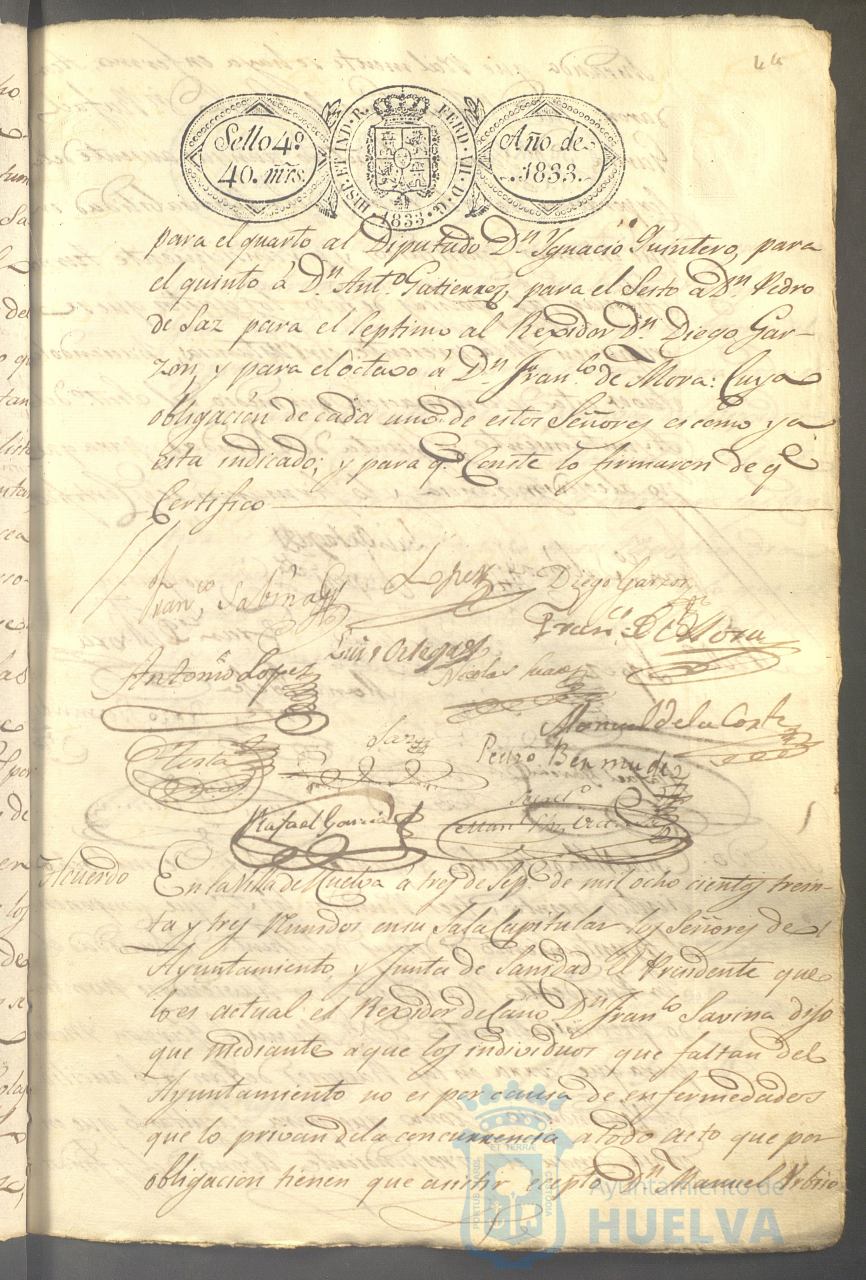 44
Sello 4º
40. mrs.
HISP. ET IND. R. FERD. VII. D. G.
.1833.
Año de
.1833.
para el quarto al Diputado Dn. Ygnacio Quintero, para
el quinto á Dn. Anto. Gutierrez, para el Sesto á Dn. Pedro
de Saz para el septimo al Rexidor Dn. Diego Gar-
zon, y para el octavo á Dn. Franco. de Mora: Cuya
obligación de cada uno de estos Señores es como ya
esta indicado; y para q. Conste lo firmaron de qe
Certifico
Franco. Sabina
Lopez
Diego Garzon
Franco. De Mora
Antonio Lopez
Luis Ortega
Nicolas
Manuel de la Corte
Saz
Pedro Bermudez
Rafael Garcia
Acuerdo
En la Villa de Huelva á tres de Sepe. de mil ocho cientos trein-
ta y tres Reunidos en su Sala Capitular los Señores del
Ayuntamiento, y Junta de Sanidad el Presidente que
lo es actual el Rexidor decano Dn. Franco. Savina dijo
que mediante a que los individuos que faltan del
Ayuntamiento no es por causa de enfermedades
que lo privan de la concurrencia a todo acto que por
obligacion tienen que asistir ecepto Dn. Manuel
Ayuntamiento de
HUELVA